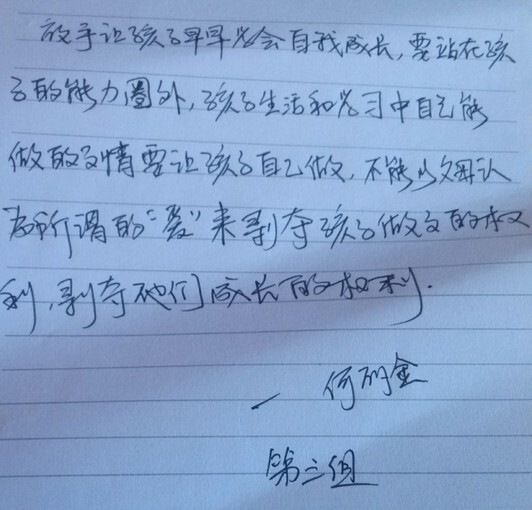 放手让孩子早早学会自我成长,要站在孩
子的能力圈外,孩子生活和学习中自己能
做的事情要让孩子自己做,不能以父母认
为所谓的“爱”来剥夺孩子做事的权
利,剥夺他们成长的权利.
— 何丽金
第三组